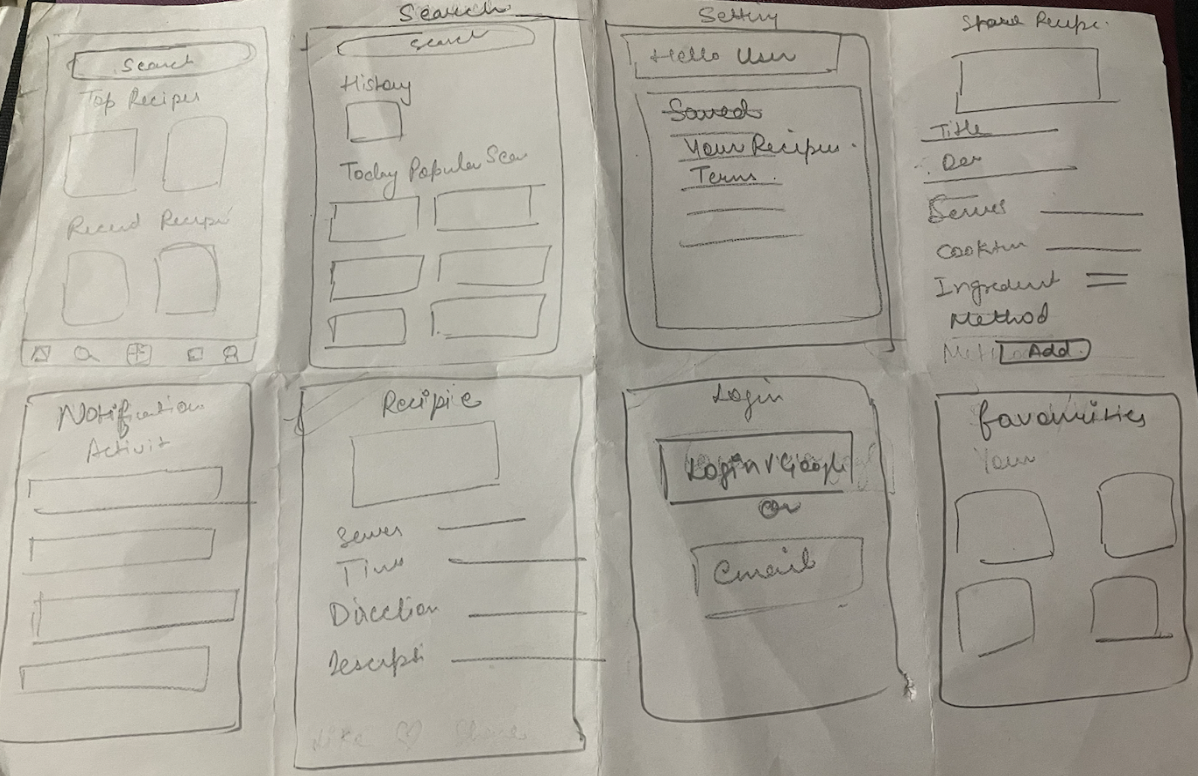 Search
Top Recipes
Recend Recipi
Search
Search
History
Today Popular Sear
Setting
Hello User
Saved
Your Recipes.
Terms.
Share Recipe.
Title
Des
Serves
Cooktim
Ingredient
Method
Add.
Notification
Activit
Recipie
Serves
Time
Direction
Descripti
Like ♡ Share
Login
Login v Google
or
email
favourities
Your